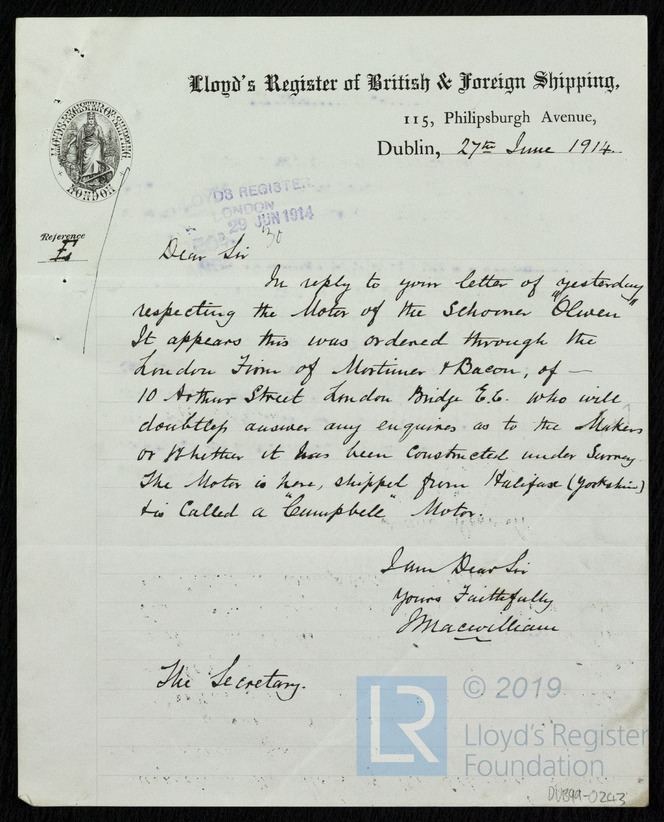 Lloyd's Register of British & Foreign Shipping,
115, Philipsburgh Avenue,
Dublin, 27th June 1914
LLOYD'S REGISTER OF SHIPPING
LONDON
LOYDS REGISTER
LONDON
29 JUN 1914
Reference
Dear Sir
In reply to your letter of yesterday
respecting the Motor of the Schooner "Olwen"
It appears this was ordered through the
London Firm of Mortimer & Bacon, of —
10 Arthur Street London Bridge E.C. who will
doubtless answer any enquires as to the Makers
or Whether it has been Constructed under Survey
The Motor is here, shipped from Halifax (Yorkshire)
& is Called a "Campbell" Motor.
I am Dear Sir
Yours Faithfully
JMacwilliam
The Secretary.
LR
© 2019
Lloyd's Register
Foundation
DUB99-0243